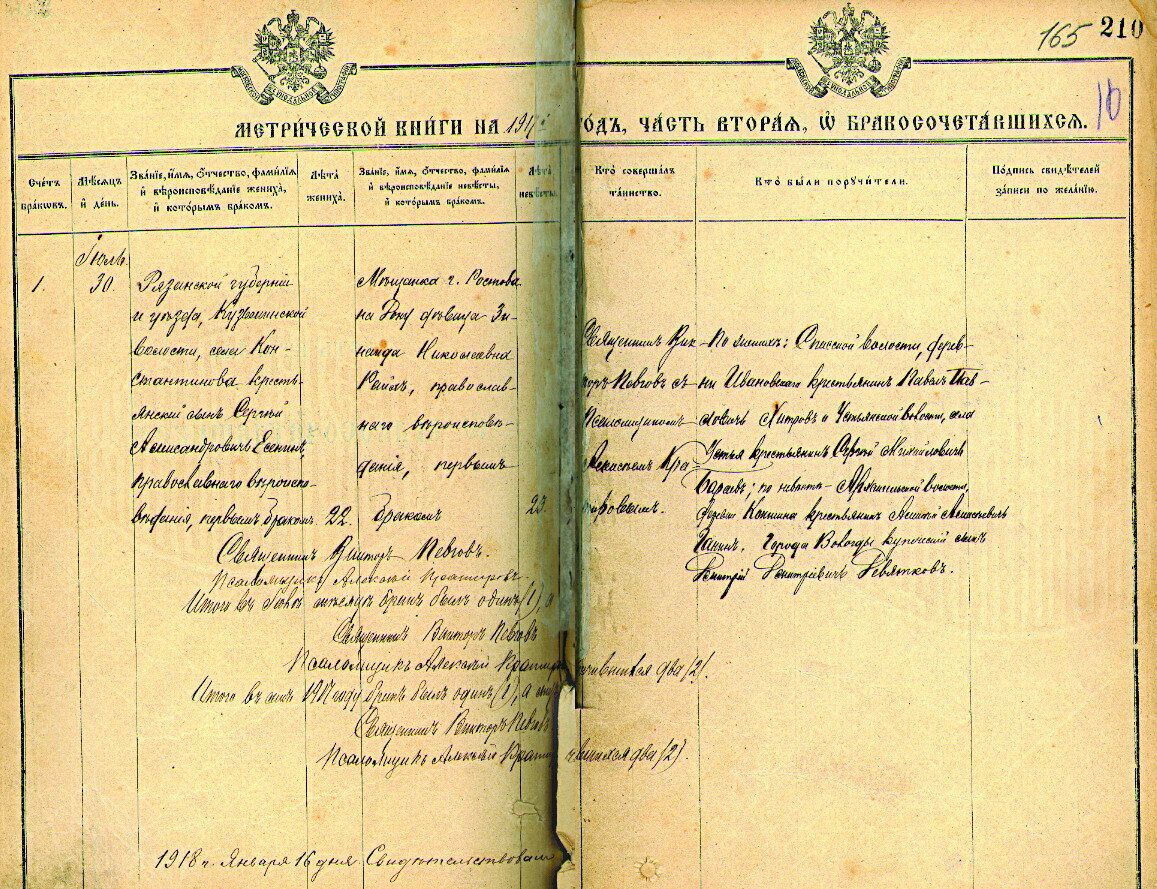 165 210
10
МЕТРИЧЕСКОЙ КНИГИ НА 1917 ГОДЪ, ЧАСТЬ ВТОРАЯ, Ѡ БРАКОСОЧЕТАВШИХСЯ.
Счетъ браковъ.
Мѣсяцъ и день.
Званіе, имя, отчество, фамилія
и вѣроисповѣданіе жениха,
и которымъ бракомъ.
Лѣта жениха.
Званіе, имя, отчество, фамилія
и вѣроисповѣданіе невѣсты,
и которымъ бракомъ.
Лѣта невѣсты.
Кто совершалъ
таинство.
Кто были поручители.
Подпись свидѣтелей
записи по желанію.
Іюль
1.
30.
Рязанской губерніи
и уѣзда, Кузьминской
волости, села Кон-
стантинова кресть-
янскій сынъ Сергѣй
Александровичъ Есенинъ,
православнаго вѣроиспо-
вѣданія, первымъ бракомъ.
22.
Мѣщанка г. Ростова
на Дону дѣвица Зи-
наида Николаевна
Райхъ, православ-
наго вѣроисповѣ-
данія, первымъ
бракомъ
23.
Священникъ Вик-
торъ Пѣвговъ съ
псаломщикомъ
Алексѣемъ Кра-
тировымъ.
По женихѣ: Спасской волости, дерев-
ни Ивановской крестьянинъ Павелъ Пав-
ловичъ Хитровъ и Устьянской волости, села
Устья крестьянинъ Сергѣй Михайловичъ
Бараевъ; по невѣстѣ - Архангельской волости,
деревни Коншина крестьянинъ Алексѣй Алексѣевичъ
Ганинъ. Города Вологды купеческій сынъ
Дмитрій Дмитріевичъ Девятковъ.
Священникъ Викторъ Пѣвговъ.
Псаломщикъ Алексѣй Кратировъ.
Итого въ Іюлѣ мѣсяцѣ бракъ былъ одинъ (1), а
Священникъ Викторъ Пѣвговъ
Псаломщикъ Алексѣй Кратиро чившихся два (2).
Итого въ семъ 1917 году бракъ былъ одинъ (1), а
Священникъ Викторъ Пѣвговъ
Псаломщикъ Алексѣй Крати чившихся два (2).
1918 г. Января 16 дня Свидѣтельствовалъ